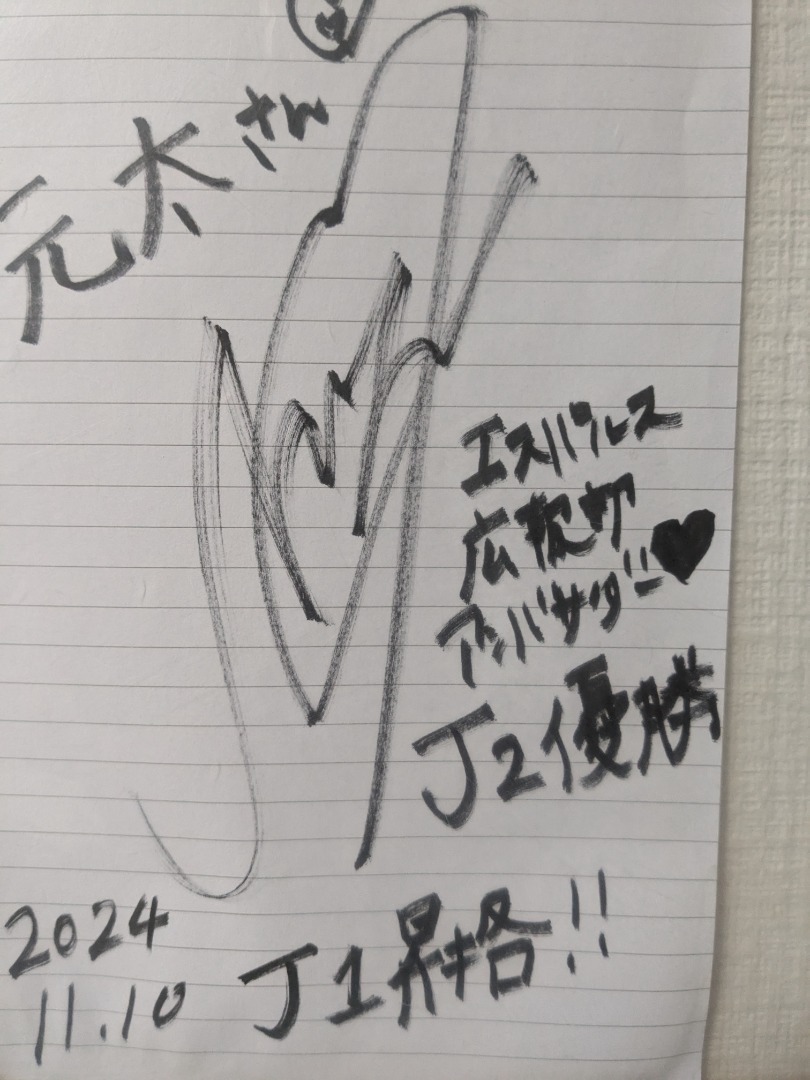 元太さん
エスパルス
広報部
アンバサダー♥
J2優勝
2024
11.10
J1昇格!!